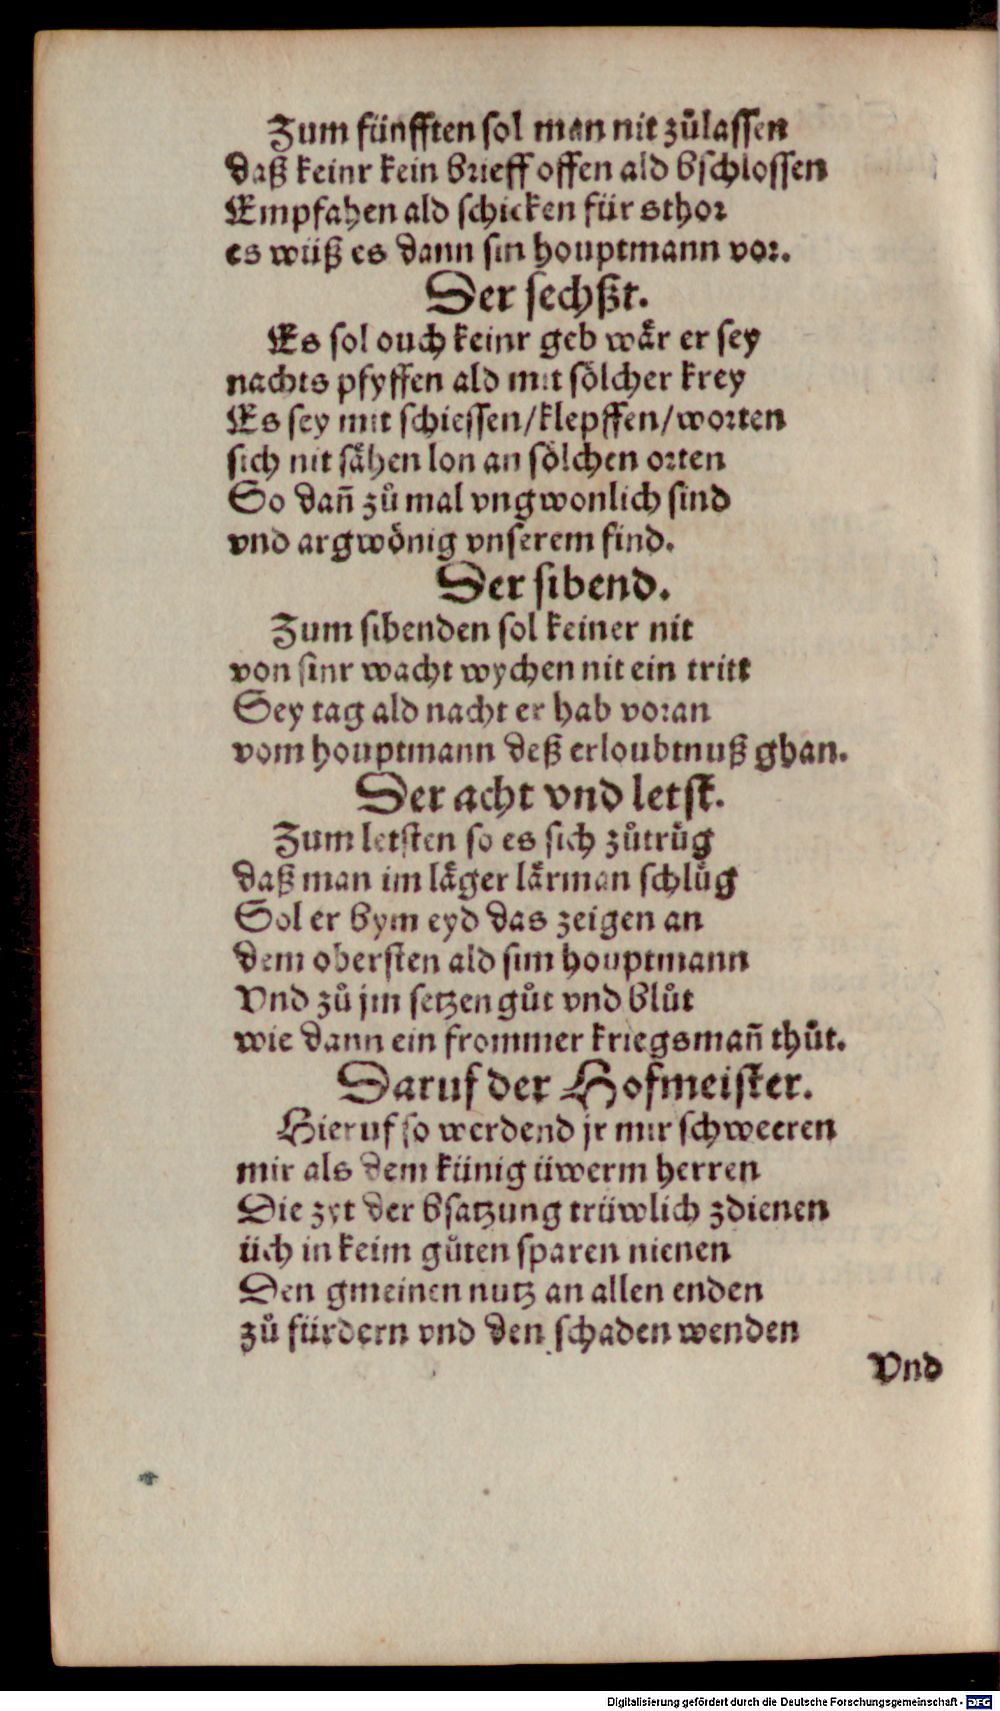 Zum fünfften sol man nit zůlassen
daß keinr kein brieff offen ald bschlossen
Empfahen ald schicken für sthor
es wüß es dann sin houptmann vor.
Der sechßt.
Es sol ouch keinr geb wår er sey
nachts pfyffen ald mit sölcher krey
Es sey mit schiessen/klepffen/worten
sich nit såhen lon an sölchen orten
So dañ zů mal vngwonlich sind
vnd argwönig vnserem find.
Der sibend.
Zum sibenden sol keiner nit
von sinr wacht wychen nit ein tritt
Sey tag ald nacht er hab voran
vom houptmann deß erloubtnuß ghan.
Der acht vnd letst.
Zum letsten so es sich zůtrůg
daß man im låger lårman schlůg
Sol er bym eyd das zeigen an
dem obersten ald sim houptmann
Vnd zů jm setzen gůt vnd blůt
wie dann ein frommer kriegsmañ thůt.
Daruf der Hofmeister.
Hieruf so werdend jr mir schweeren
mir als dem künig üwerm herren
Die zyt der bsatzung trüwlich zdienen
üch in keim gůten sparen nienen
Den gmeinen nutz an allen enden
zů fürdern vnd den schaden wenden
Vnd
Digitalisierung gefördert durch die Deutsche Forschungsgemeinschaft - DFG